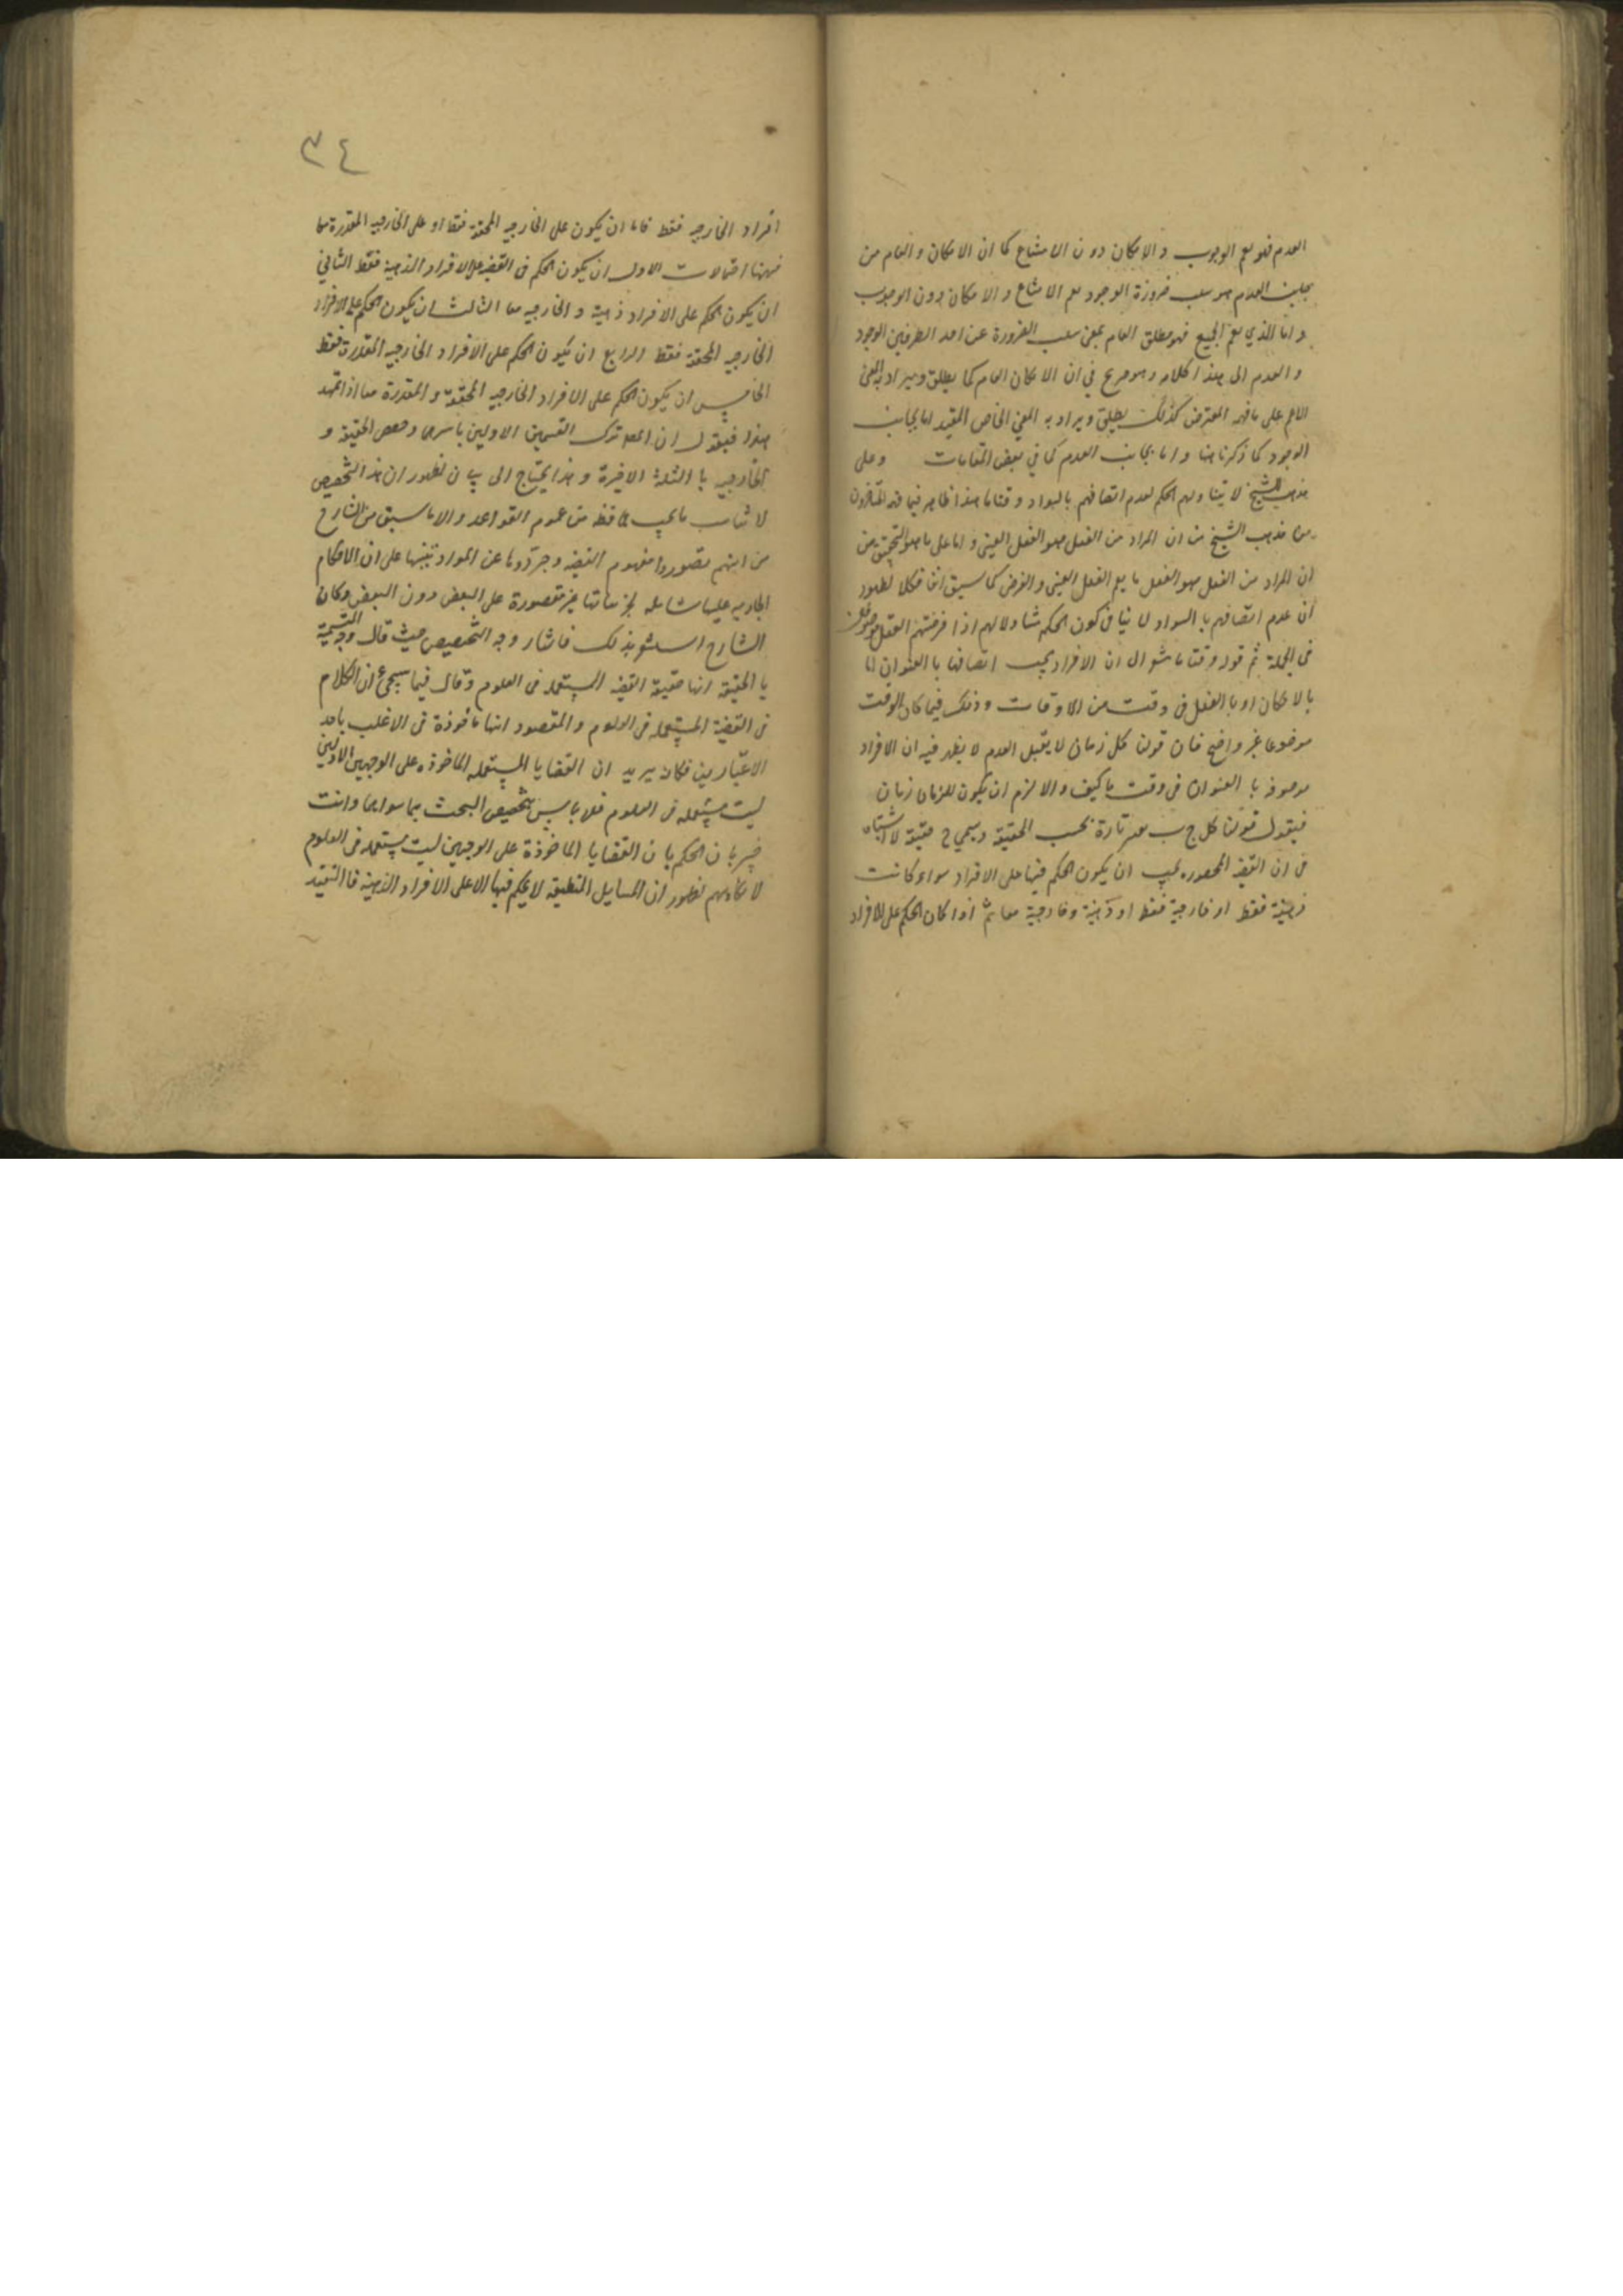 العدم فهو يعم الوجوب والامكان دون الامتناع كما ان الامكان العام من
جانب العدم هو سلب ضرورة الوجود يعم الامتناع والامكان دون الوجوب
واما الذي يعم الجميع فهو مطلق العام بمعنى سلب الضرورة عن احد الطرفين الوجود
والعدم الى هذا كلامه وهو صريح في ان الامكان العام كما يطلق ويراد به المعنى
الاعم على ما فهمه المعترض كذلك يطلق ويراد به المعنى الخاص المقيد اما بجانب
الوجود كما ذكرنا هنا واما بجانب العدم كما في بعض المقامات وعلى
مذهب الشيخ لا يتناولهم الحكم لعدم اتصافهم بالسواد وقتا ما هذا ظاهر فيما فهمه المتاخرون
من مذهب الشيخ من ان المراد من الفعل هو الفعل العيني واما على ما هو التحقيق من
ان المراد من الفعل هو الفعل ما يعم الفعل العيني والفرضي كما سبق آنفا فكلا لظهور
ان عدم اتصافهم بالسواد لا ينافي كون الحكم متناولا لهم اذا فرضتهم العقل
في الجملة ثم قوله وقتا ما يشعر الى ان الافراد يجب اتصافها بالعنوان اما
بالامكان او بالفعل في وقت من الاوقات وذلك فيما كان الوقت
موضوعا غير واضح فان قولنا كل زمان لا يقبل العدم لا يظهر فيه ان الافراد
موصوفة بالعنوان في وقت ما كيف والا لزم ان يكون للزمان زمان
فيقول قولنا كل ج ب يعتبر تارة بحسب الحقيقة ويسمى ح حقيقية لا اشتباه
في ان القضية المحصورة يجب ان يكون الحكم فيها على الافراد سواء كانت
ذهنية فقط او خارجية فقط او ذهنية وخارجية معا ثم اذا كان الحكم على الافراد
٣٤
افراد الخارجيه فقط فاما ان يكون على الخارجيه المحققة فقط او على الخارجيه المقدرة معا
فههنا احتمالات الاول ان يكون الحكم في القضيه على الافراد الذهنية فقط الثاني
ان يكون الحكم على الافراد ذهنية والخارجيه معا الثالث ان يكون الحكم على الافراد
الخارجيه المحققة فقط الرابع ان يكون الحكم على الافراد الخارجيه المقدرة فقط
الخامس ان يكون الحكم على الافراد الخارجيه المحققة والمقدرة معا اذا تمهد
هذا فيقول ان المص ترك القسمين الاولين باسرهما وخص الحقيقة و
الخارجيه بالثلثة الاخيرة وهذا يحتاج الى بيان لظهور ان هذا التخصيص
لا يناسب ما يجب محافظة من عموم القواعد والا ما سبق من الشارح
من انهم تصوروا مفهوم القضيه وجردوها عن المواد تنبيها على ان الاحكام
الجاريه عليها شامله لجزئياتها غير مقصورة على البعض دون البعض وكان
الشارح استشعر بذلك فاشار وجه التخصيص حيث قال وجه التسمية
بالحقيقة انها حقيقة القضيه المستعمله في العلوم وقال فيما سيجيء ان الكلام
في القضية المستعمله في العلوم والمقصود انها مأخوذة في الاغلب باحد
الاعتبارين فكانه يريد ان القضايا المستعمله الماخوذه على الوجهين الاولين
ليست مستعمله في العلوم فلا باس بتخصيص البحث بما سواهما وانت
خبير بان الحكم بان القضايا الماخوذة على الوجهين ليست مستعمله في العلوم
لظهور ان المسايل المنطقية لا يحكم فيها الا على الافراد الذهنية فالتقييد